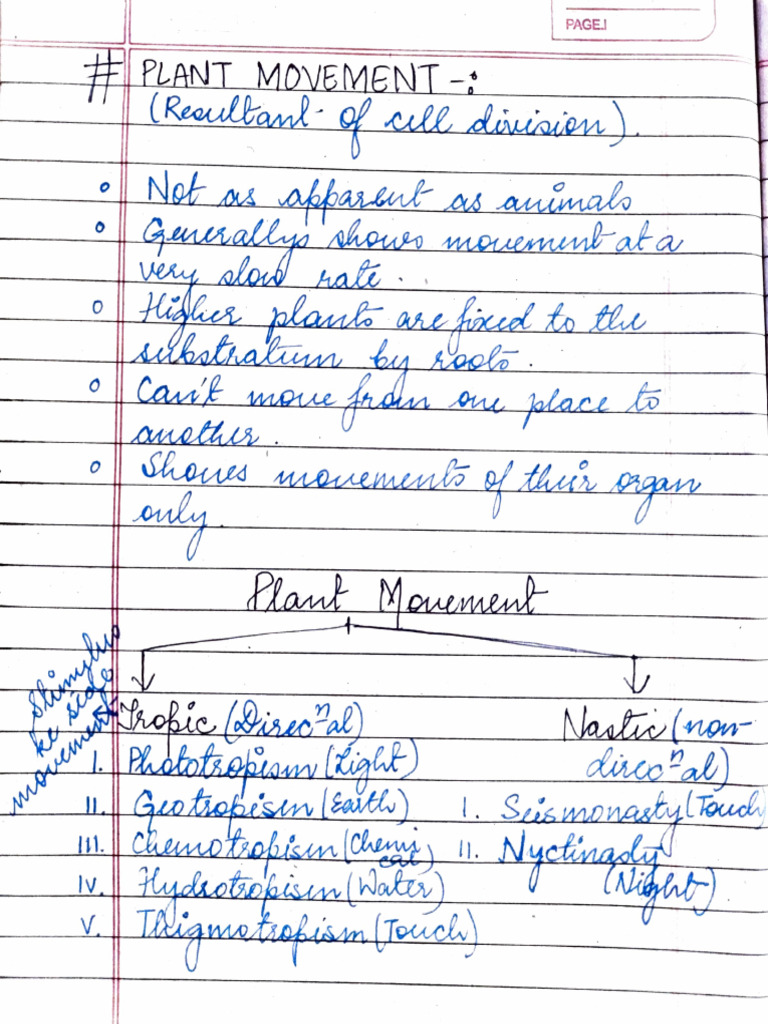 PAGE.
# PLANT MOVEMENT -:
(Resultant of cell division).
o Not as apparent as animals
o Generallys shows movement at a
very slow rate.
o Higher plants are fixed to the
substratum by roots.
o Can't move from one place to
another.
o Shows movements of their organ
only.
Plant Movement
Stimulus
ke side
movement
Tropic (Direcⁿal)
I. Phototropism (Light)
II. Geotropism (Earth)
III. Chemotropism (Chemical)
IV. Hydrotropism (Water)
V. Thigmotropism (Touch)
Nastic (non-
direcⁿal)
I. Seismonasty (Touch)
II. Nyctinasty
(Night)